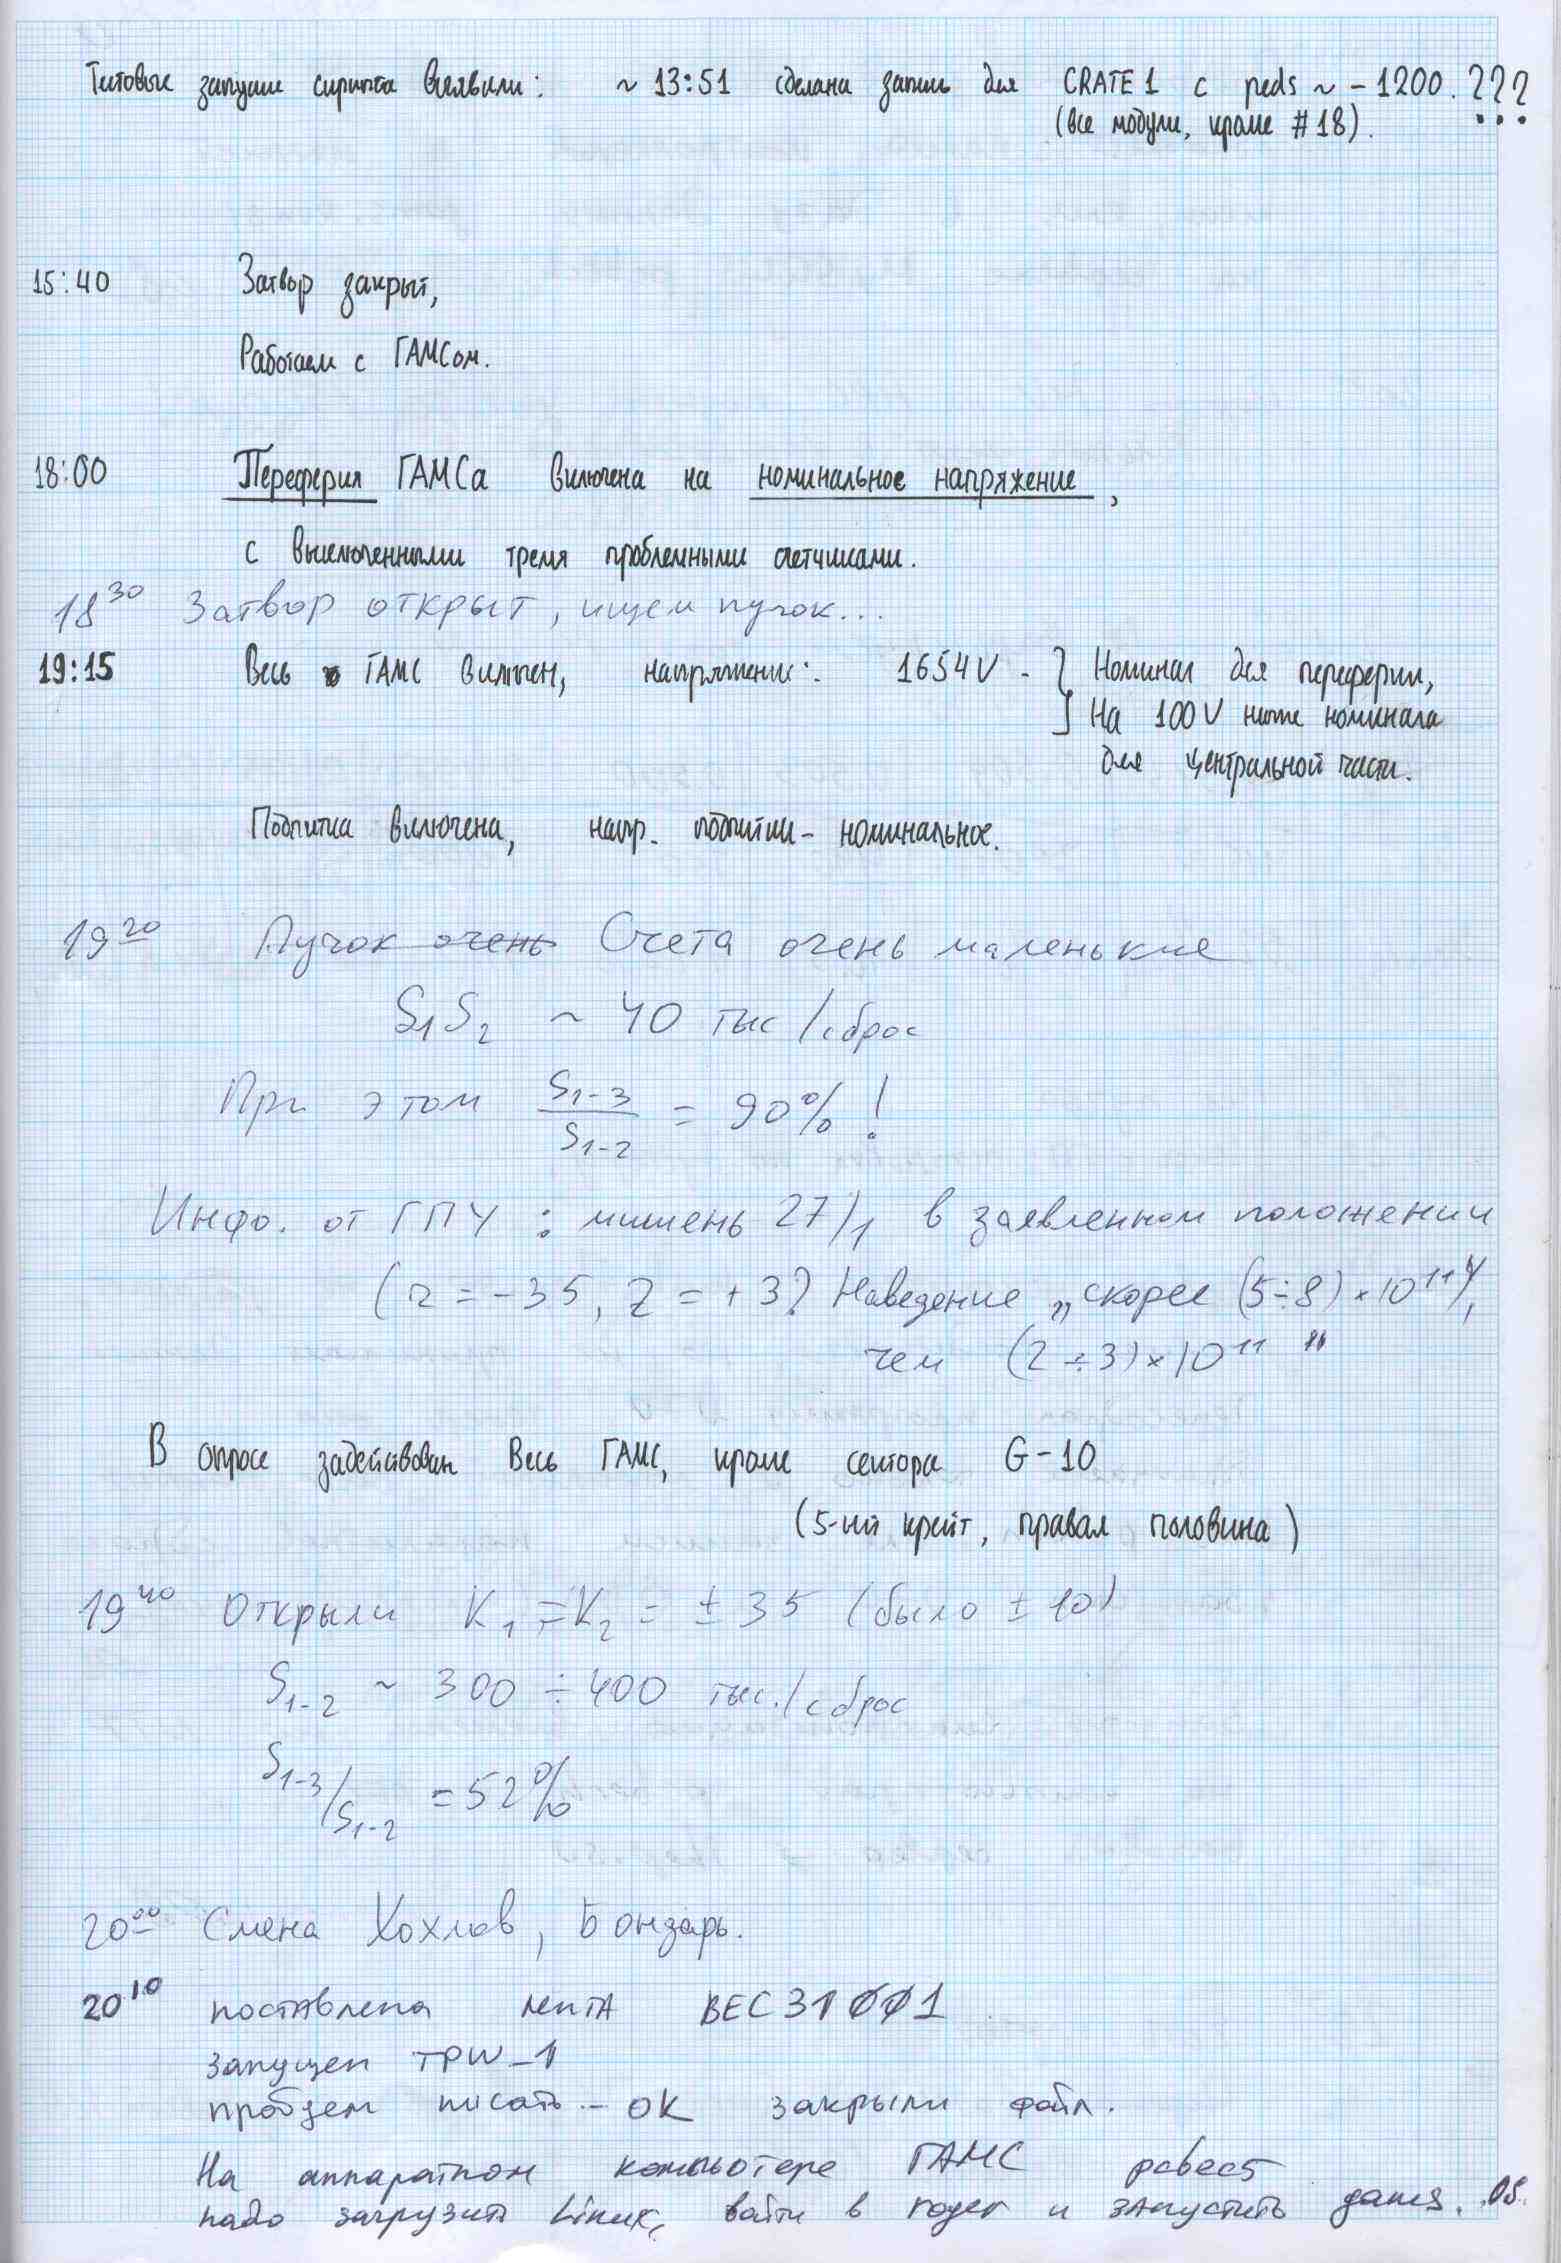 Тестовые запуски скрипта выявили: ~ 13:51 сделана запись для CRATE 1 с peds ~ -1200. ???
(все модули, кроме #18).
15:40 Затвор закрыт,
Работаем с ГАМСом.
18:00 Переферия ГАМСа включена на номинальное напряжение,
с выключенными тремя проблемными счетчиками.
18 30 Затвор открыт, ищем пучок...
19:15 Весь ГАМС включен, напряжение: 1654V - } Номинал для переферии,
На 100V ниже номинала
для центральной части.
Подпитка включена, напр. подпитки - номинальное.
19 20 Пучок очень Счета очень маленькие
S1S2 ~ 40 тыс/сброс
При этом S1-3/S1-2 = 90% !
Инфо. от ГПУ : мишень 27/1 в заявленном положении
(r = -35, Z = +3) Наведение „скорее (5÷8)×10^11,
чем (2÷3)×10^11 "
В опросе задействован Весь ГАМС, кроме сектора G-10
(5-ый крейт, правая половина)
19 40 Открыли K1 = K2 = ± 35 (было ± 10)
S1-2 ~ 300 ÷ 400 тыс./сброс
S1-3/S1-2 = 52%
20 00 Смена Хохлов, Бондарь.
20 10 поставлена лента ВЕС31001
запущен TPW_1
пробуем писать - ОК закрыли файл.
На аппаратном компьютере ГАМС pcbec5
надо загрузить Linux, войти в и запустить gams.